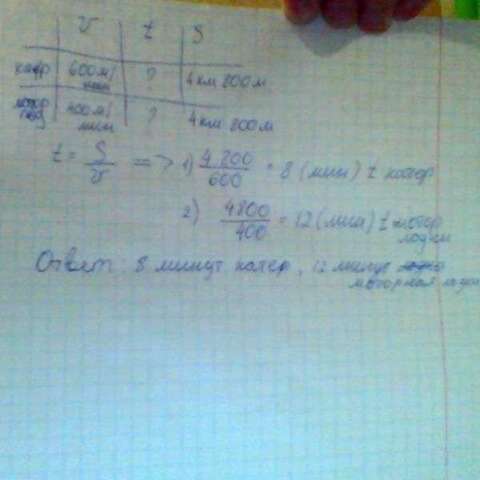 v t S
катер 600 м/мин ? 4 км 800 м
мотор лод 400 м/мин ? 4 км 800 м
t = S/v => 1) 4 800/600 = 8 (мин) t катер
2) 4800/400 = 12 (мин) t мотор лодки
Ответ: 8 минут катер, 12 минут
моторная лодка